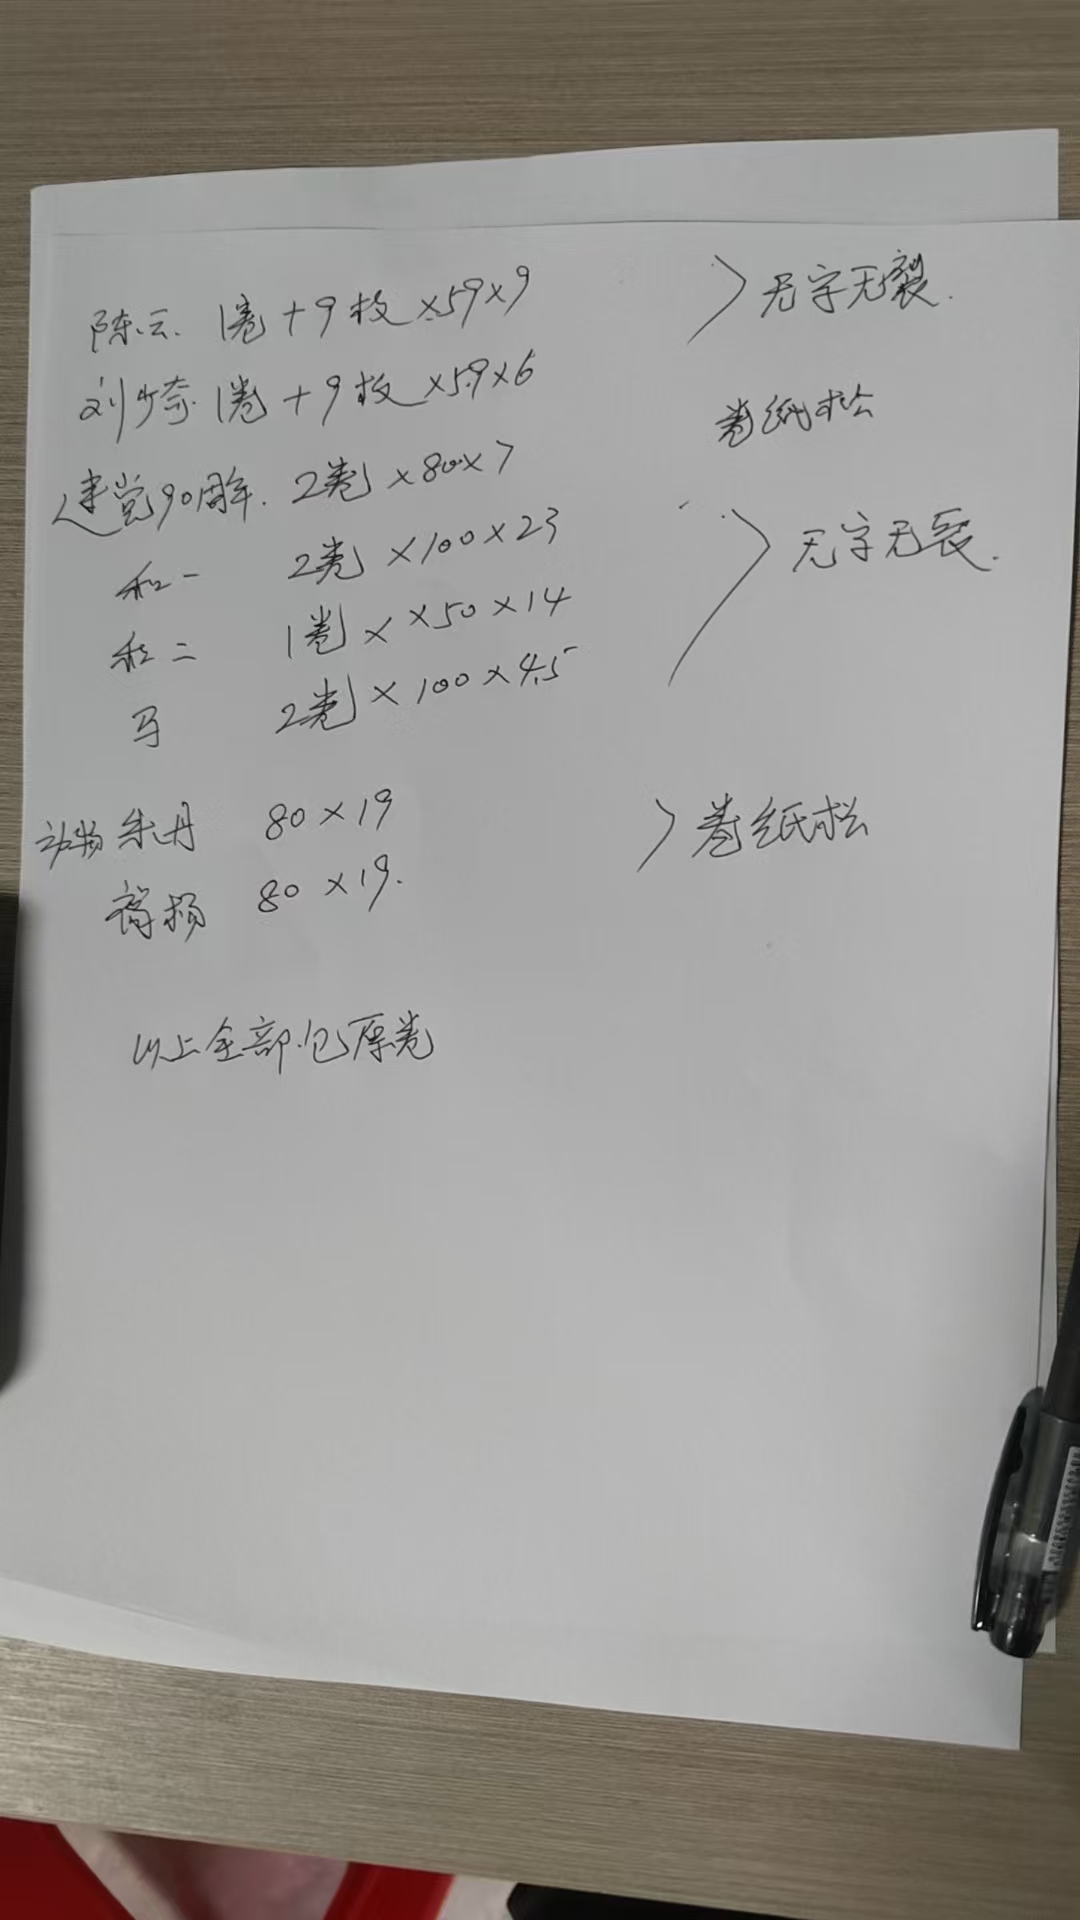 陈云. 1卷+9枚×59×9 >无字无裂.
刘少奇. 1卷+9枚×59×6
卷纸松
建党90周年. 2卷×80×7
和一 2卷×100×23 >无字无裂.
和二 1卷××50×14
马 2卷×100×4.5
动物朱丹 80×19 >卷纸松
80×19.
以上全部包原卷